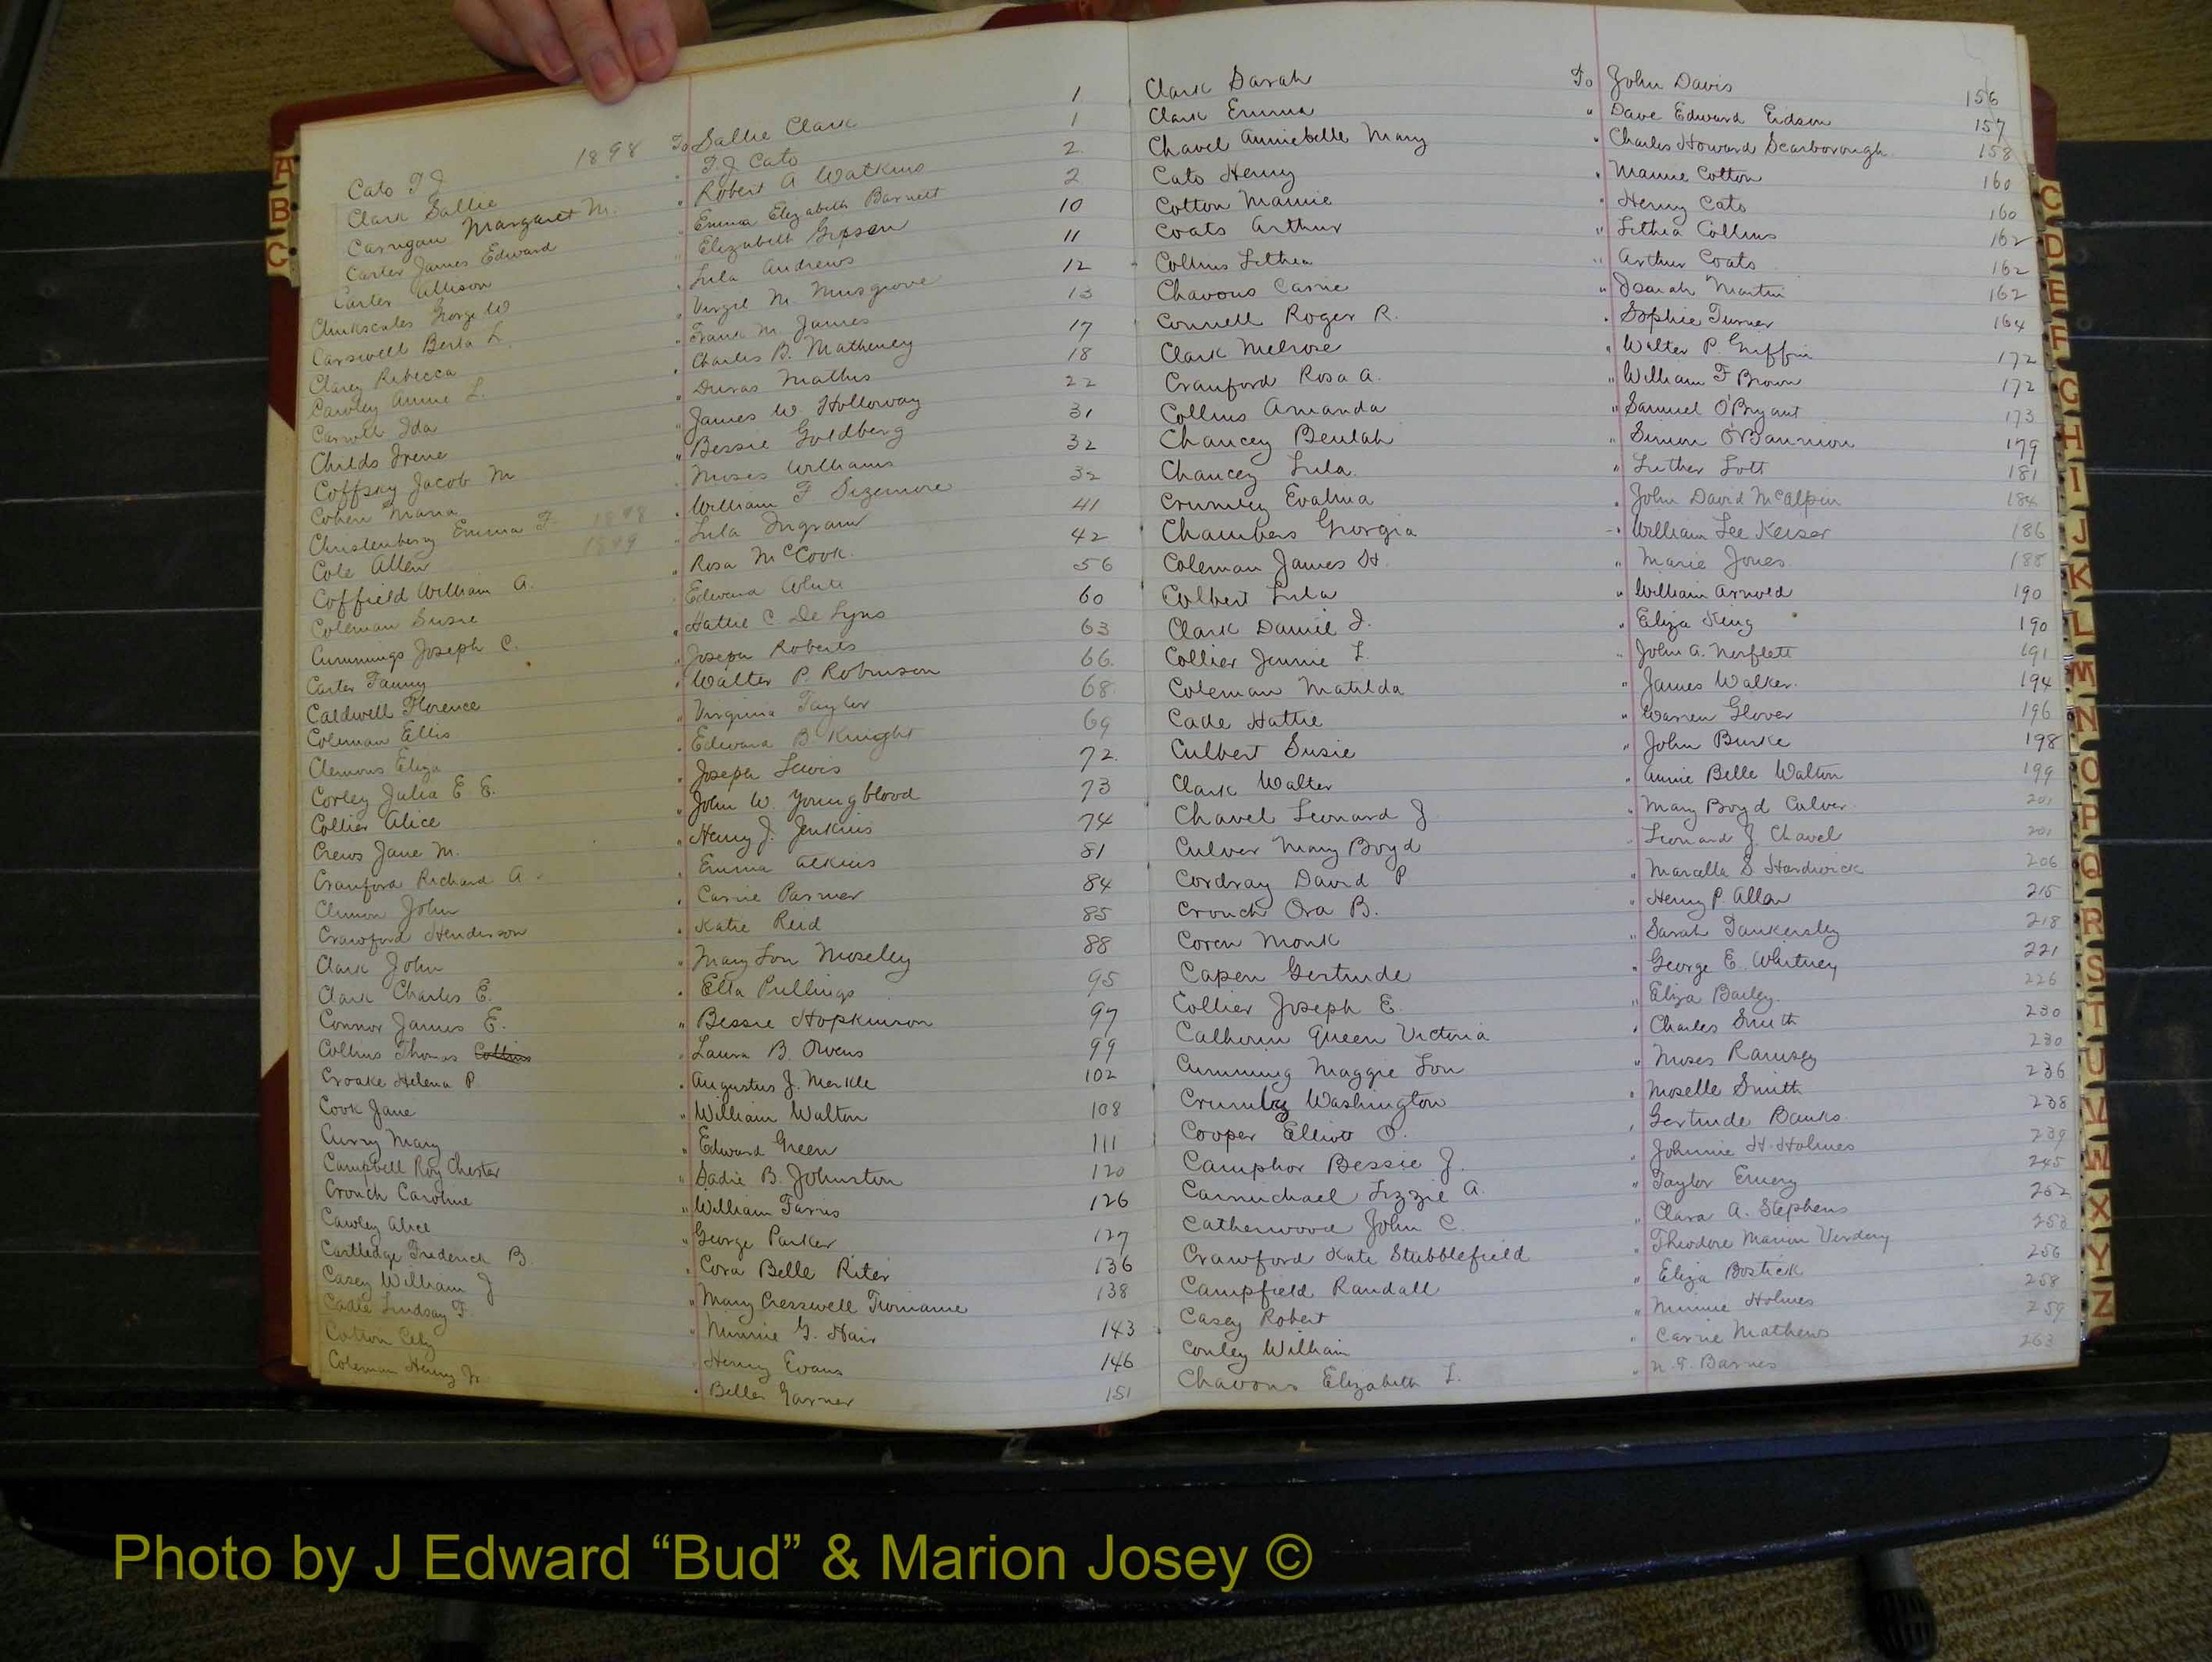 A
B
C
1898
Cato T J To Sallie Clark 1
Clark Sallie " T J Cato 1
Carrigan Margaret M. " Robert A Watkins 2
Carter James Edward " Emma Elizabeth Barnett 2
Carter Allison " Elizabeth Gipson 10
Chinkscales George W " Lula Andrews 11
Carswell Berta L. " Virgil M. Musgrove 12
Clarey Rebecca " Frank M. James 13
Cawley Annie L. " Charles B. Matheney 17
Carroll Ida " Duras Mathis 18
Childs Irene " James W. Holloway 22
Coffsky Jacob M " Bessie Goldberg 31
Cohen Maria " Moses Williams 32
Christenberry Emma F. 1898 " William F. Sizemore 32
Cole Allen 1899 " Lula Ingram 41
Coffield William A. " Rosa McCook 42
Coleman Susie " Edward White 56
Cummings Joseph C. " Hattie C De Lyns 60
Carter Fanny " Joseph Roberts 63
Caldwell Florence " Walter P. Robinson 66
Coleman Ellis " Virginia Taylor 68
Clemons Eliza " Edward B. Knight 69
Corley Julia E E. " Joseph Lewis 72
Collier Alice " John W. Youngblood 73
Crews Jane M. " Henry J. Jenkins 74
Cranford Richard A. " Emma Atkins 81
Clemon John " Carrie Parmer 84
Crawford Henderson " Katie Reid 85
Clark John " Mary Lou Moseley 88
Clark Charles E. " Etta Pullings 95
Connor James E. " Bessie Hopkinson 97
Collins Thomas Collins " Laura B. Owens 99
Croake Helena P " Augustus J. Merkle 102
Cook Jane " William Walton 108
Curry Mary " Edward Green 111
Campbell Roy Chester " Sadie B. Johnston 120
Crouch Caroline " William Farris 126
Cawley Alice " George Parker 127
Cartledge Frederick B. " Cora Belle Riter 136
Casey William J " Mary Cresswell Twiname 138
Cadle Lindsay F. " Minnie G. Hair 143
Cotton City " Henry Evans 146
Coleman Henry Jr. " Belle Garner 151
Clark Sarah To John Davis 156
Clark Emma " Dave Edward Eidson 157
Chavel Anniebelle Mary " Charles Howard Scarborough 158
Cato Henry " Mamie Cotton 160
Cotton Mamie " Henry Cato 160
Coats Arthur " Lethia Collins 162
Collins Lethia " Arthur Coats 162
Chavous Carrie " Isaiah Martin 162
Connell Roger R. " Sophie Turner 164
Clark Melrose " Walter P. Griffin 172
Cranford Rosa A. " William F Brown 172
Collins Amanda " Samuel O'Bryant 173
Chancey Beulah " Simon O'Bannion 179
Chancey Lula " Luther Lott 181
Crumley Evalina " John David McAlpin 184
Chambers Georgia " William Lee Keiser 186
Coleman James H. " Marie Jones 188
Colbert Lula " William Arnold 190
Clark Daniel J. " Eliza King 190
Collier Jennie L. " John A. Norflett 191
Coleman Matilda " James Walker. 194
Cade Hattie " Warren Glover 196
Culbert Susie " John Burke 198
Clark Walter " Annie Belle Walton 199
Chavel Leonard J " Mary Boyd Culver 201
Culver Mary Boyd " Leonard J. Chavel 201
Cordray David P " Marcella S Hardwick 206
Crouch Ora B. " Henry P. Allen 215
Coren Monk " Sarah Tankersley 218
Capen Gertrude " George E. Whitney 221
Collier Joseph E. " Eliza Bailey 226
Calhoun Queen Victoria " Charles Smith 230
Cumming Maggie Lou " Moses Ramsey 230
Crumley Washington " Moselle Smith 236
Cooper Elliott O. " Gertrude Banks 238
Camphor Bessie J. " Johnnie H. Holmes 239
Carmichael Lizzie A. " Taylor Emery 245
Catherwood John C. " Clara A. Stephens 252
Crawford Kate Stubblefield " Theodore Marion Verdery 253
Campfield Randall " Eliza Bostick 256
Casey Robert " Minnie Holmes 258
Conley William " Carrie Mathews 259
Chavous Elizabeth L. " N. T. Barnes 263
C
D
E
F
G
H
I
J
K
L
M
N
O
P
Q
R
S
T
U
V
W
X
Y
Z
Photo by J Edward “Bud” & Marion Josey ©